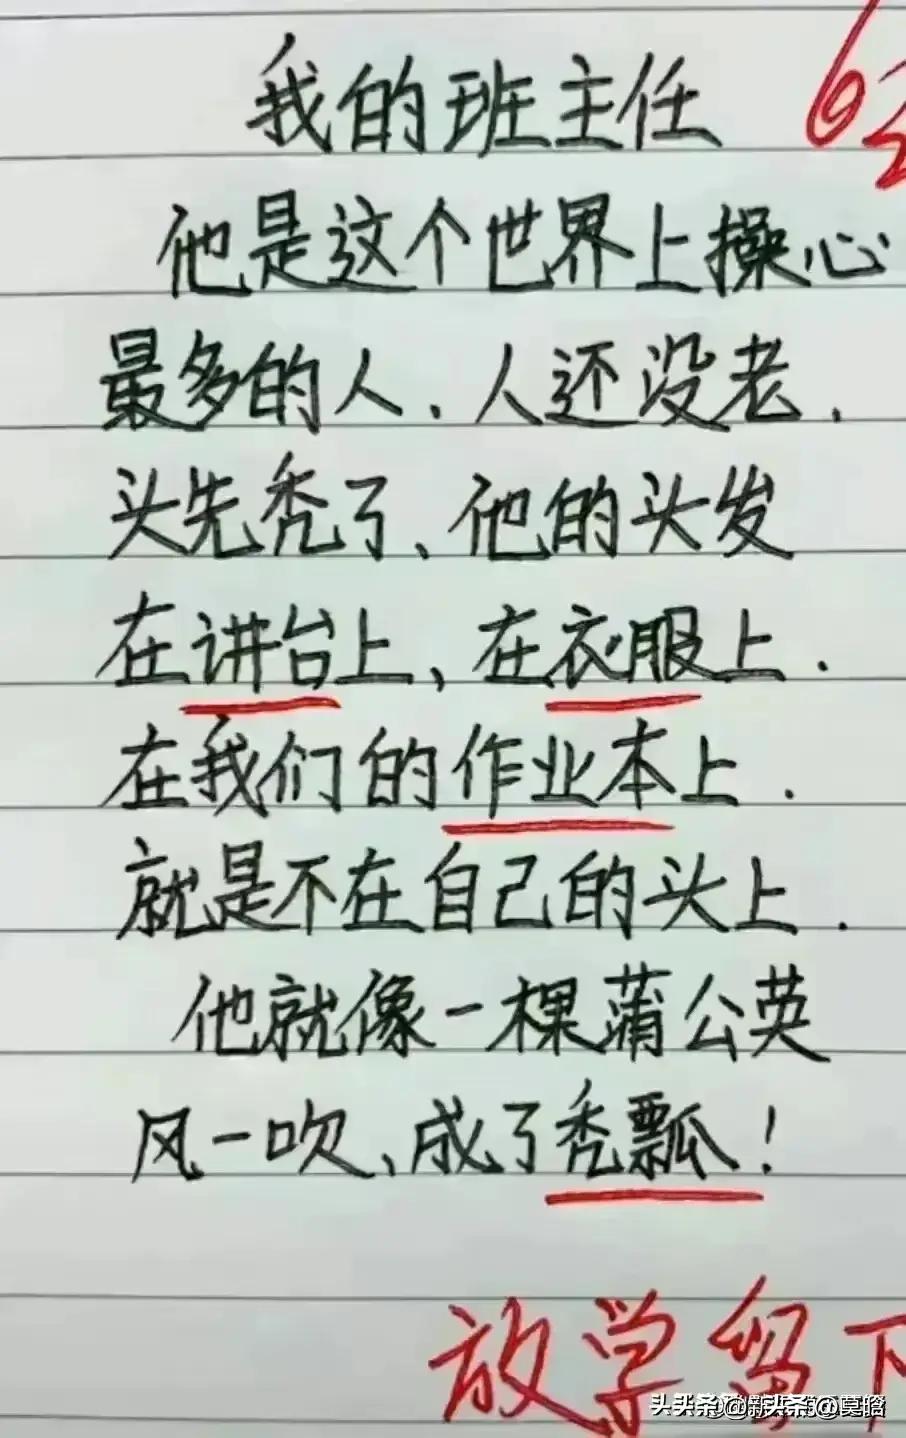 我的班主任
他是这个世界上操心
最多的人.人还没老.
头先秃了、他的头发
在讲台上、在衣服上.
在我们的作业本上.
就是不在自己的头上.
他就像一棵蒲公英
风一吹、成了秃瓢!
放学留下